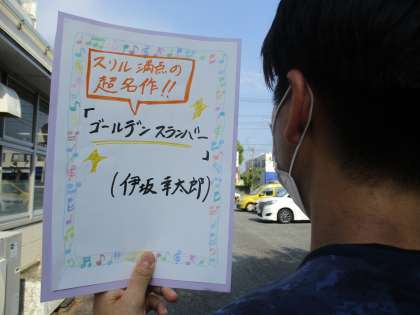 スリル満点の
超名作!!
「ゴールデンスランバー」
(伊坂幸太郎)